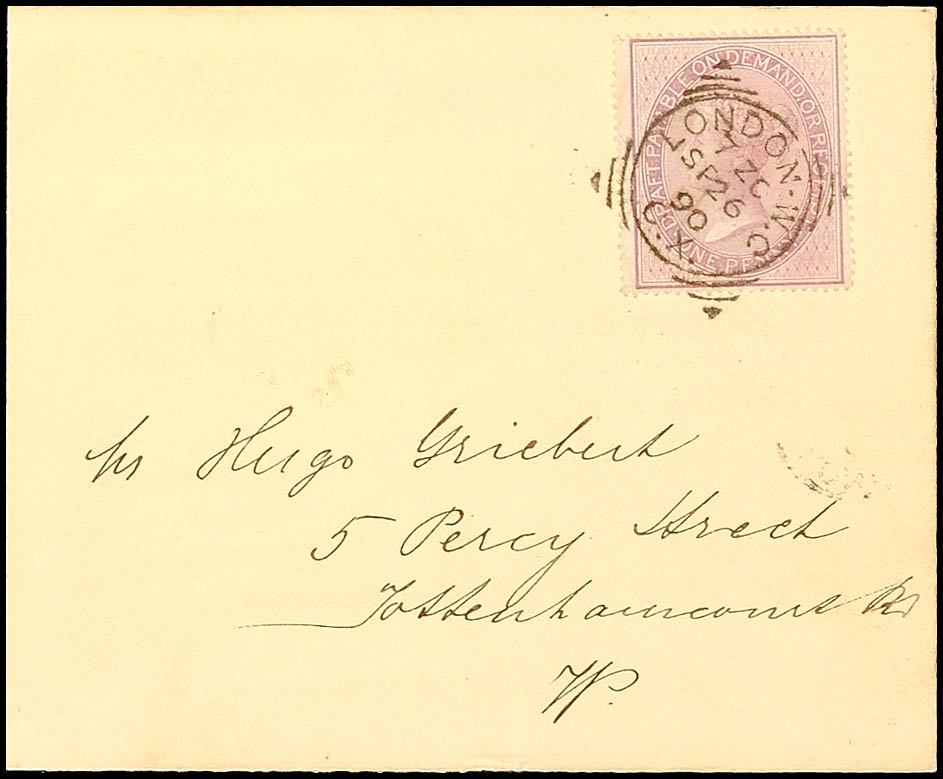 DRAFT PAYABLE ON DEMAND, OR RECEIPT
ONE PENNY
LONDON.W.C
7 ZC
SP 26
90
C.X.
Mr Hugo Griebert
5 Percy Street
Tottenhamcourt Rd
W.